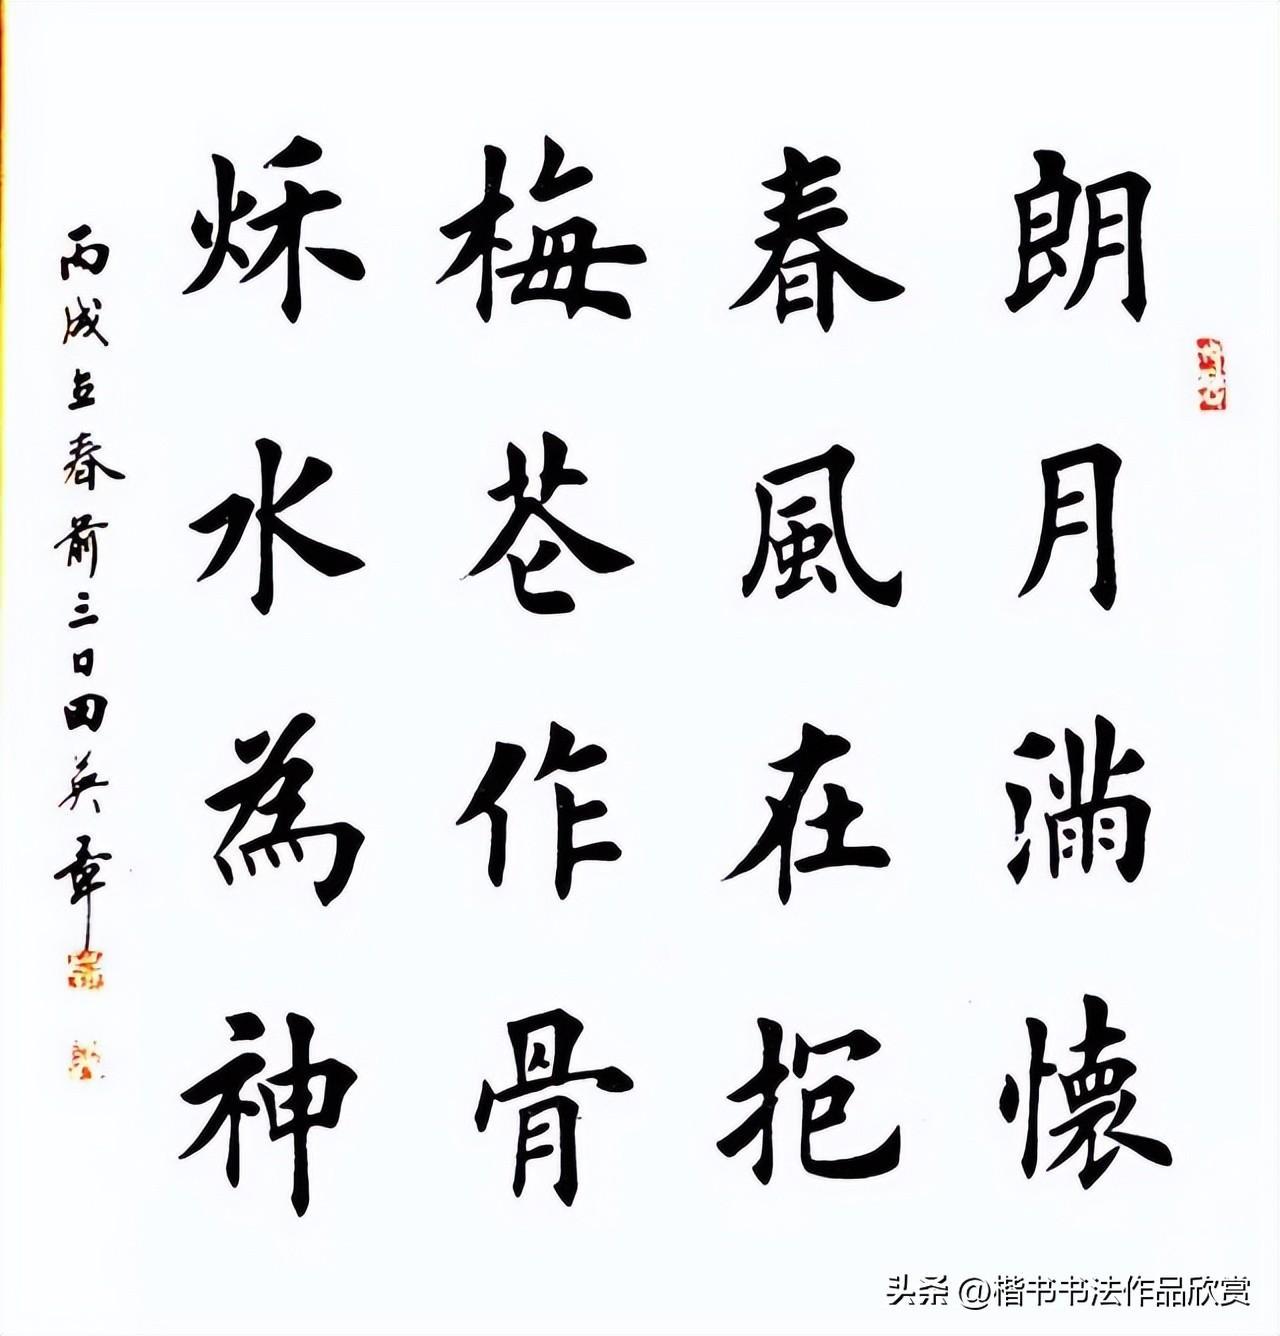 朗月滿懷
春風在抱
梅花作骨
秌水為神
丙戌立春前三日田英章
头条 @楷书书法作品欣赏